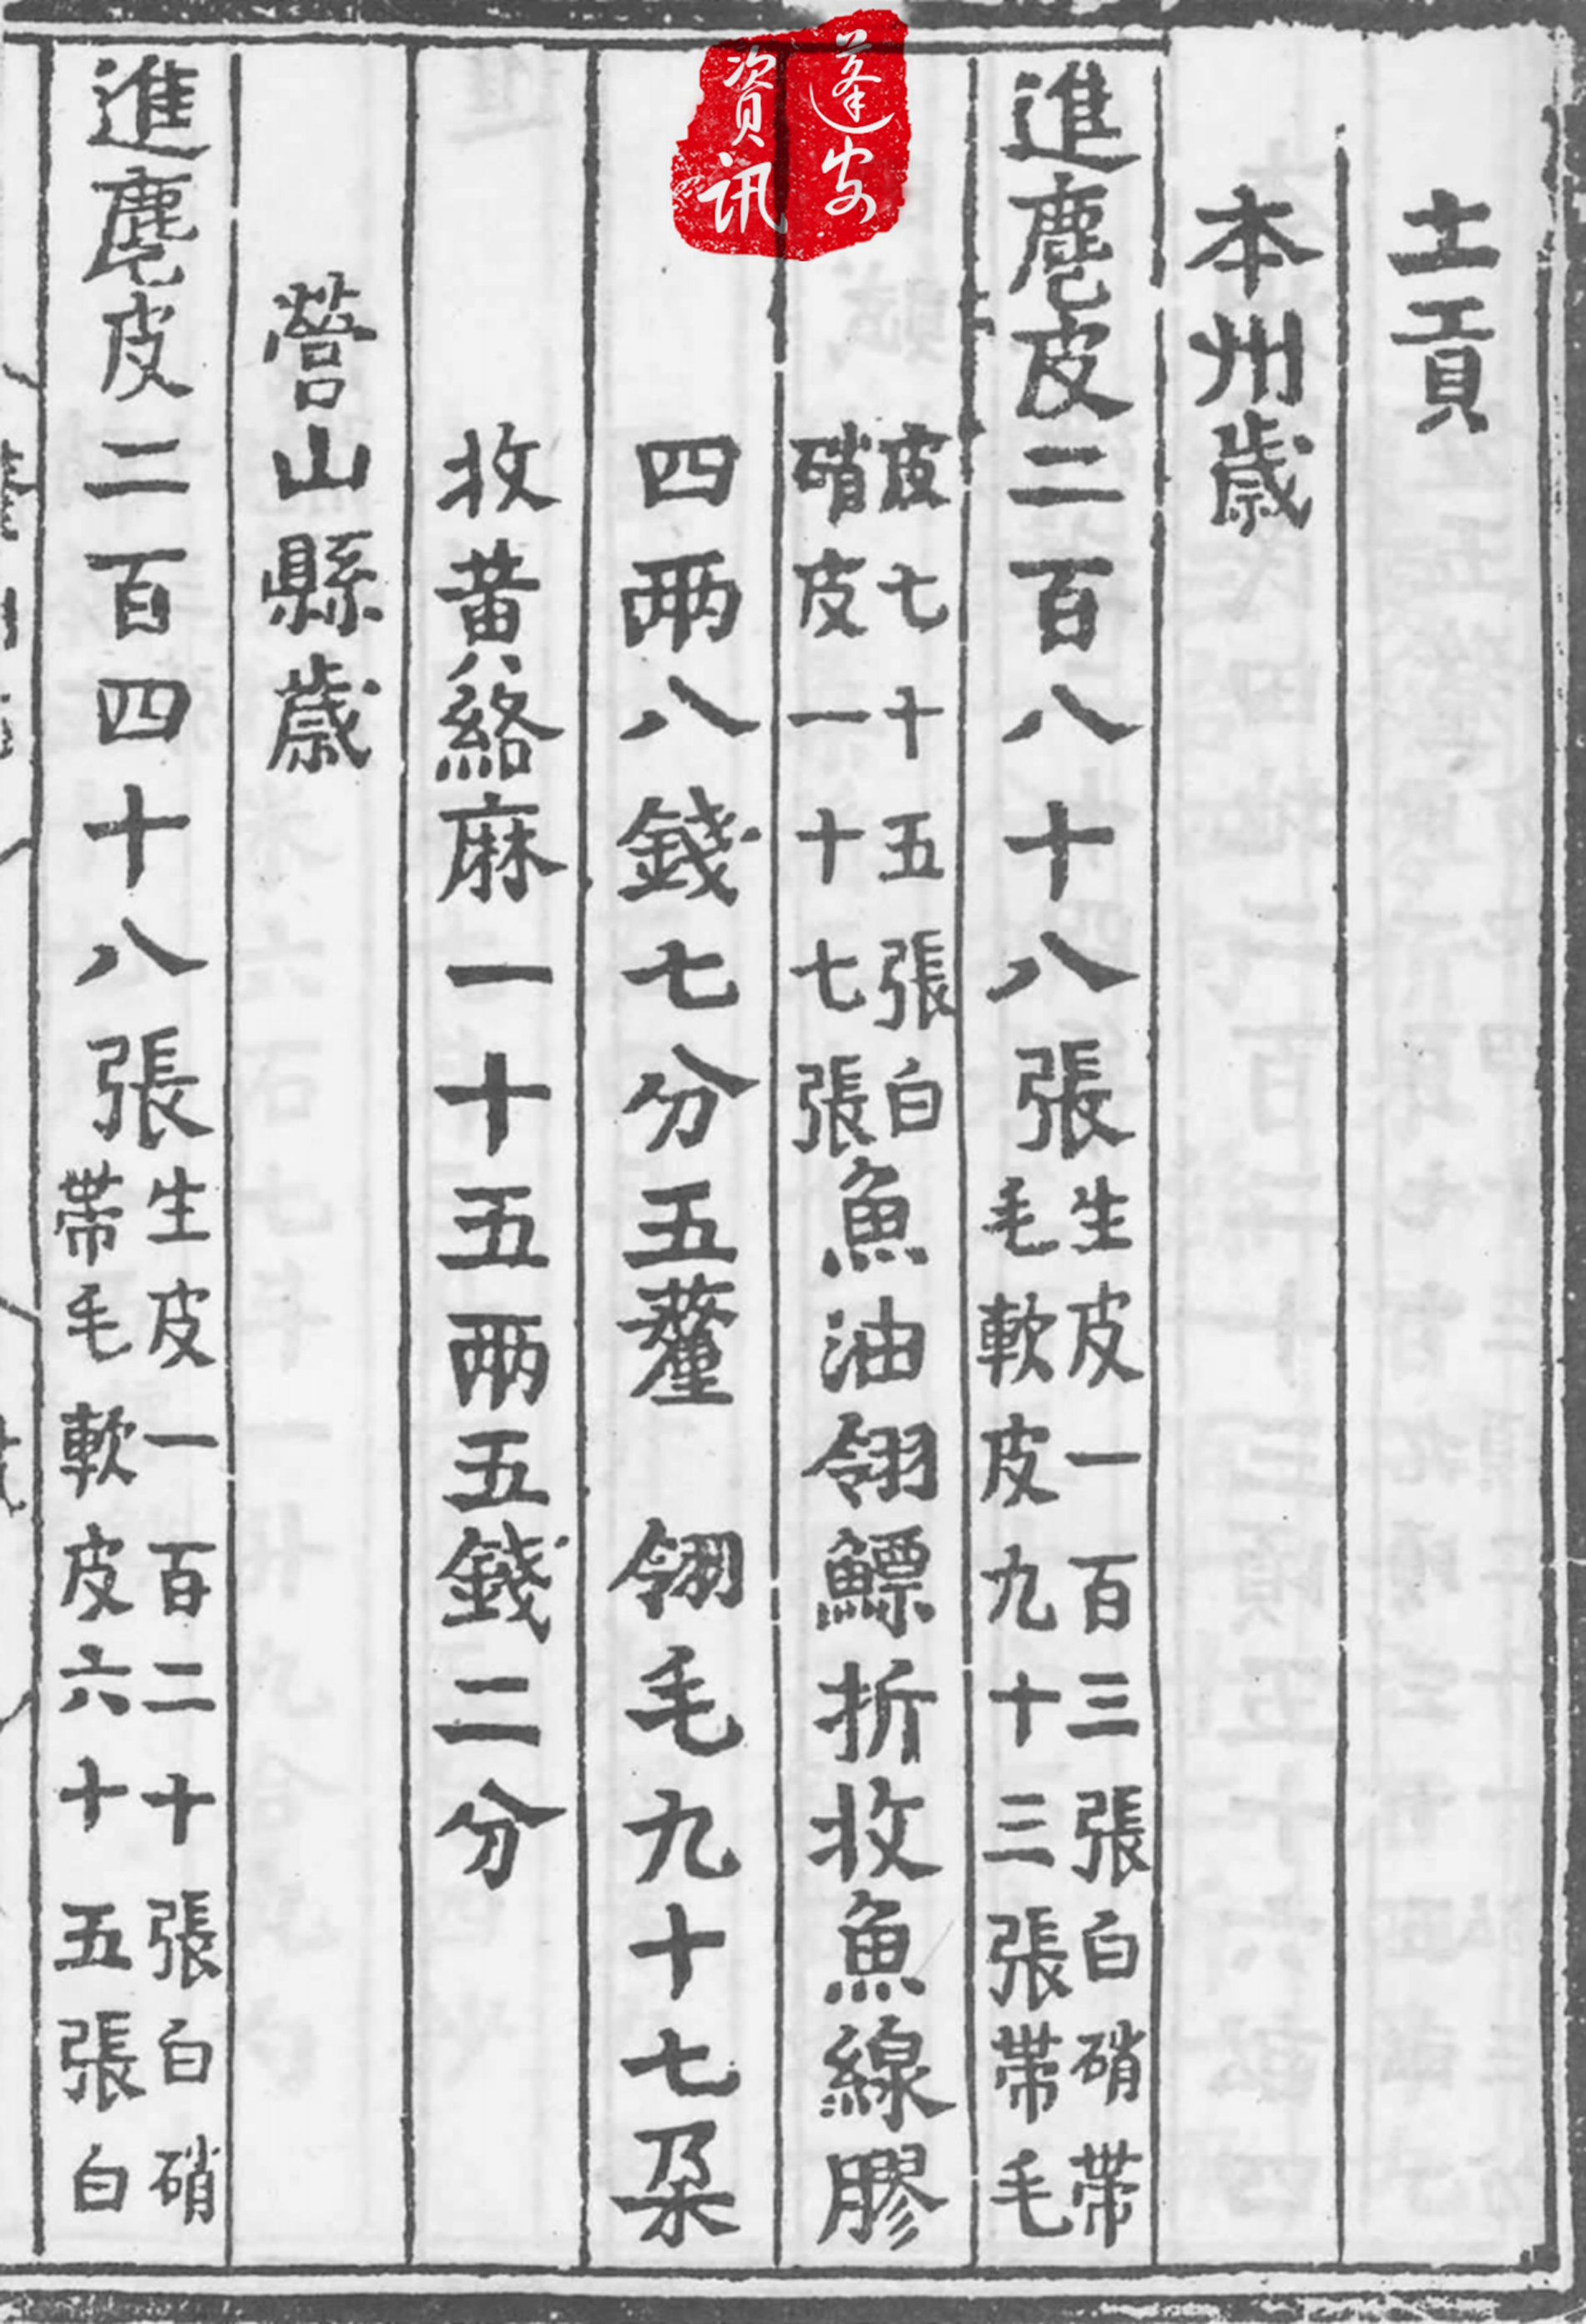 土貢
本州歲
進麂皮二百八十八張生皮一百三張白硝帶
毛軟皮九十三張帶毛
皮七十五張白
硝皮一十七張魚油翎鰾折收魚線膠
四兩八錢七分五釐 翎毛九十七朶
收黃絡麻一十五兩五錢二分
營山縣歲
進麂皮二百四十八張生皮一百二十張白硝
帶毛軟皮六十五張白
蓬安
資訊